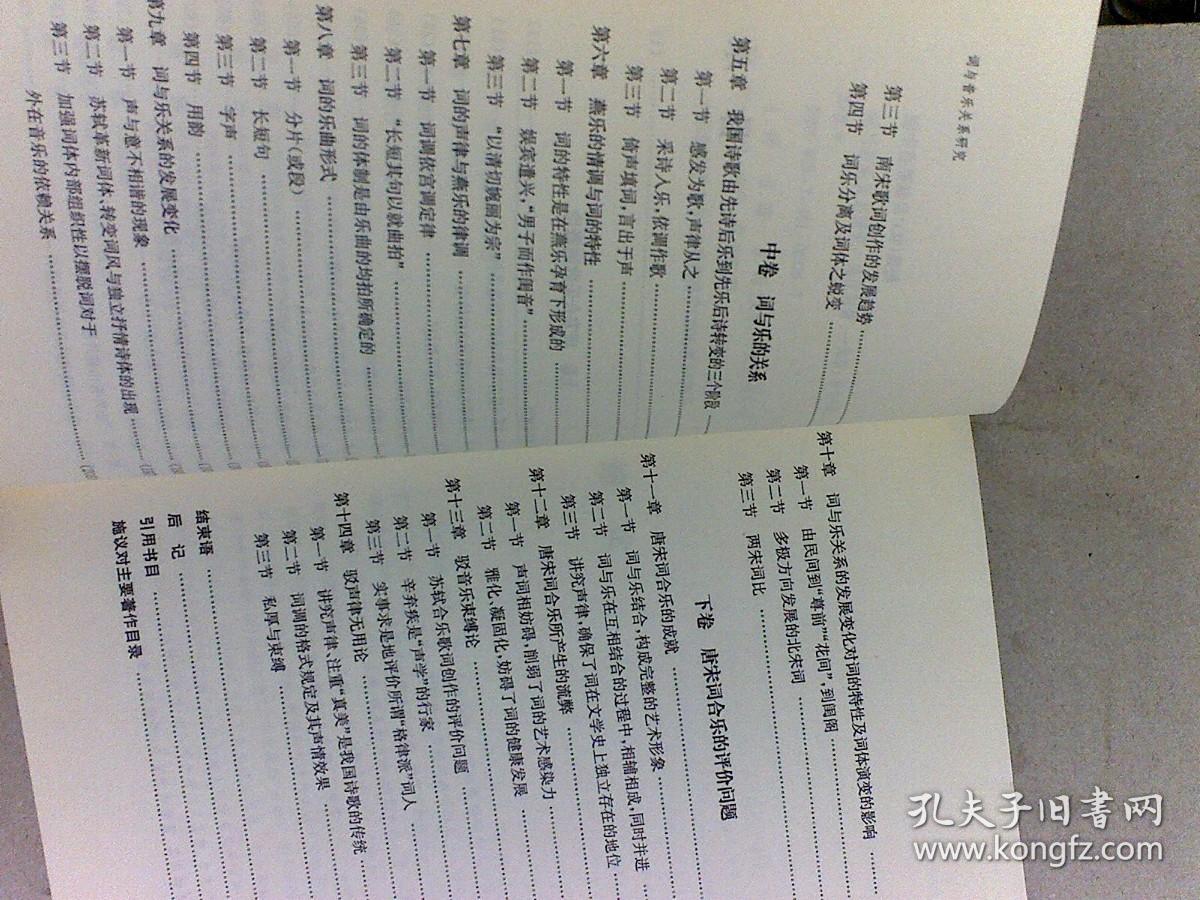 词与音乐关系研究
第三节 南宋歌词创作的发展趋势
第四节 词乐分离及词体之蜕变
中卷 词与乐的关系
第五章 我国诗歌由先诗后乐到先乐后诗转变的三个阶段
第一节 感发为歌,声律从之
第二节 采诗入乐,依调作歌
第三节 倚声填词,言出于声
第六章 燕乐的情调与词的特性
第一节 词的特性是在燕乐孕育下形成的
第二节 娱宾遣兴,“男子而作闺音”
第三节 “以清切婉丽为宗”
第七章 词的声律与燕乐的律调
第一节 词调依宫调定律
第二节 “长短其句以就曲拍”
第三节 词的体制是由乐曲的均拍所确定的
第八章 词的乐曲形式
第一节 分片(或段)
第二节 长短句
第三节 字声
第四节 用韵
第九章 词与乐关系的发展变化
第一节 声与意不相谐的现象
第二节 苏轼革新词体、转变词风与独立抒情诗体的出现
第三节 加强词体内部组织性以摆脱词对于
外在音乐的依赖关系
第十章 词与乐关系的发展变化对词的特性及词体演变的影响
第一节 由民间到“尊前”“花间”,到闺阁
第二节 多极方向发展的北宋词
第三节 两宋词比
下卷 唐宋词合乐的评价问题
第十一章 唐宋词合乐的成就
第一节 词与乐结合,构成完整的艺术形象
第二节 词与乐在互相结合的过程中,相辅相成,同时并进
第三节 讲究声律,确保了词在文学史上独立存在的地位
第十二章 唐宋词合乐所产生的流弊
第一节 声词相妨碍,削弱了词的艺术感染力
第二节 雅化、凝固化,妨碍了词的健康发展
第十三章 驳音乐束缚论
第一节 苏轼合乐歌词创作的评价问题
第二节 辛弃疾是“声学”的行家
第三节 实事求是地评价所谓“格律派”词人
第十四章 驳声律无用论
第一节 讲究声律、注重“真美”是我国诗歌的传统
第二节 词调的格式规定及其声情效果
第三节 私厚与束缚
结束语
后 记
引用书目
施议对主要著作目录
孔夫子旧书网
www.kongfz.com